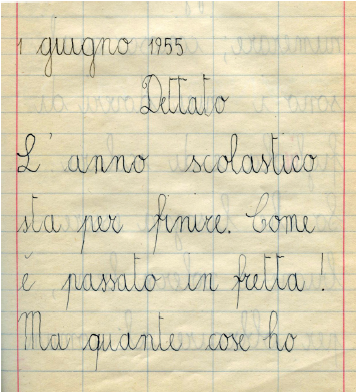 1 giugno 1955
Dettato
L'anno scolastico
sta per finire. Come
è passato in fretta!
Ma quante cose ho